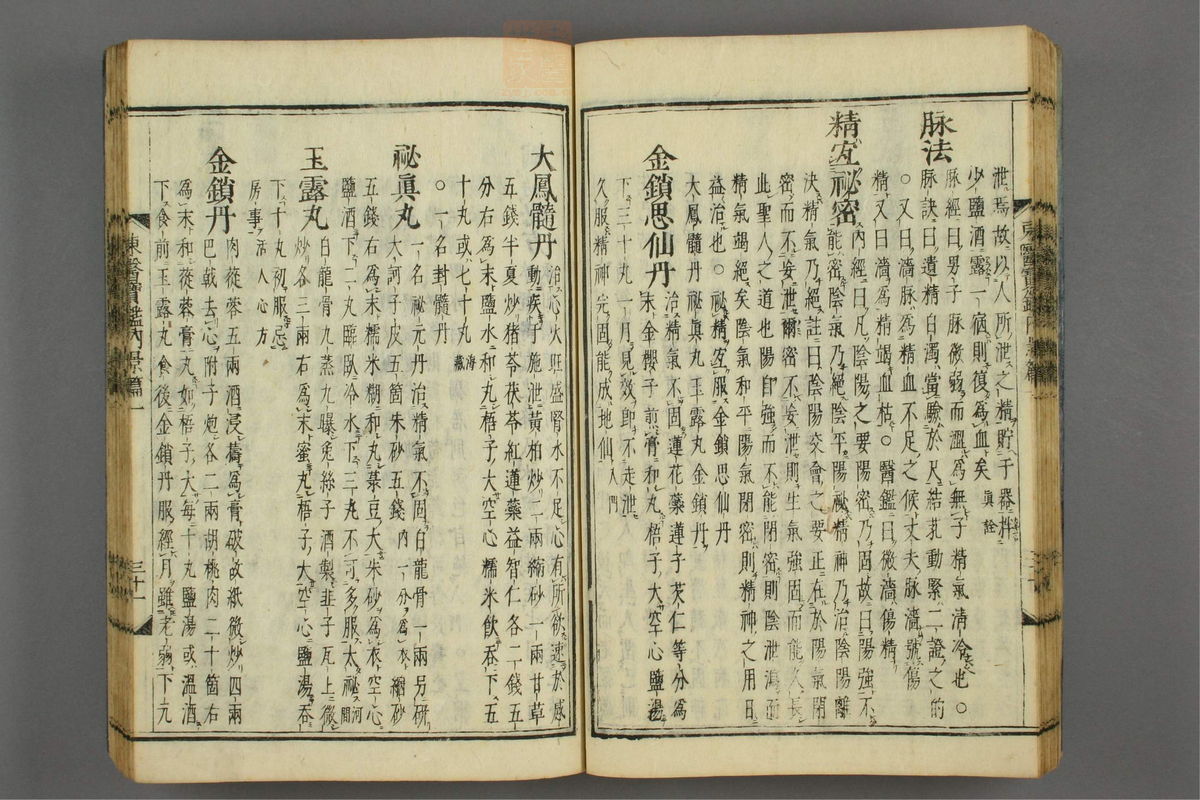 泄焉故以人所泄之精貯于器拌
少鹽酒露一宿則復爲血矣眞詮
脉法
脉經曰男子脉微弱而澁爲無子精氣淸冷也○
脉訣曰遺精白濁當驗於尺結芤動緊二證之的
○又曰濇脉爲精血不足之候丈夫脉濇號傷
精又曰濇爲精竭血枯○醫鑑曰微濇傷精
精宜祕密
內經曰凡陰陽之要陽密乃固故曰陽強不
能密陰氣乃絕陰平陽祕精神乃治陰陽離
決精氣乃絕註曰陰陽交會之要正在於陽氣閉
密而不妄泄爾密不妄泄則生氣強固而能久長
此聖人之道也陽自強而不能閉密則陰泄瀉而
精氣竭絕矣陰氣和平陽氣閉密則精神之用日
益治也○祕精宜服金鎖思仙丹
大鳳髓丹祕眞丸玉露丸金鎖丹
金鎖思仙丹
治精氣不固蓮花蘂蓮子芡仁等分爲
末金櫻子煎膏和丸梧子大空心鹽湯
下三十丸一月見效卽不走泄
久服精神完固能成地仙入門
大鳳髓丹
治心火旺盛腎水不足心有所欲速於感
動疾於施泄黃柏炒二兩縮砂一兩甘草
五錢半夏炒猪苓茯苓紅蓮蘂益智仁各二錢五
分右爲末鹽水和丸梧子大空心糯米飮吞下五
十丸或七十丸海藏
○一名封髓丹
祕眞丸
一名祕元丹治精氣不固白龍骨一兩另研
大訶子皮五箇朱砂五錢內一分爲衣縮砂
五錢右爲末糯米糊和丸菉豆大朱砂爲衣空心
鹽酒下二丸臨臥冷水下三丸不可多服太祕河間
玉露丸
白龍骨九蒸九曝兎絲子酒製韭子瓦上微
炒各三兩右爲末蜜丸梧子大空心鹽湯吞
下十丸初服忌
房事活人心方
金鎖丹
肉蓯蓉五兩酒浸擣爲膏破故紙微炒四兩
巴戟去心附子炮各二兩胡桃肉二十箇右
爲末和蓯蓉膏丸如梧子大每十丸鹽湯或溫酒
下食前玉露丸食後金鎖丹服經月雖老弱下元
東醫寶鑑內景篇一
三十一